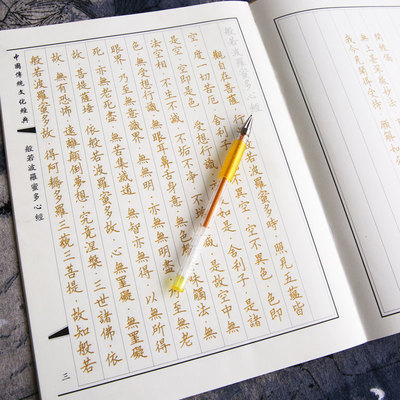 開經偈
無上甚深微妙法
我今見聞得受持 願解如
般若波羅蜜多心經
觀自在菩薩·行深般若波羅蜜多時·照見五蘊皆
空·度一切苦厄·舍利子·異空·空不異色·色即
是空·空即是色·受想行識·亦如是·舍利子·是諸
法空相·不生不滅·不垢不淨·不是故空中無
色·無受想行識·無眼耳鼻舌身意·味觸法·無
眼界·乃至無意識界·無無明·亦無無明盡·至無老
死·亦無老死盡·無苦集滅道·無智亦無得·以無所得
故·菩提薩埵·依般若波羅蜜多故·心無罣礙·無罣礙
故·無有恐怖·遠離顛倒夢想·究竟涅槃·三世諸佛·依
般若波羅蜜多故·得阿耨多羅三藐三菩提·故知般若
中國傳統文化經典
般若波羅蜜多心經
三